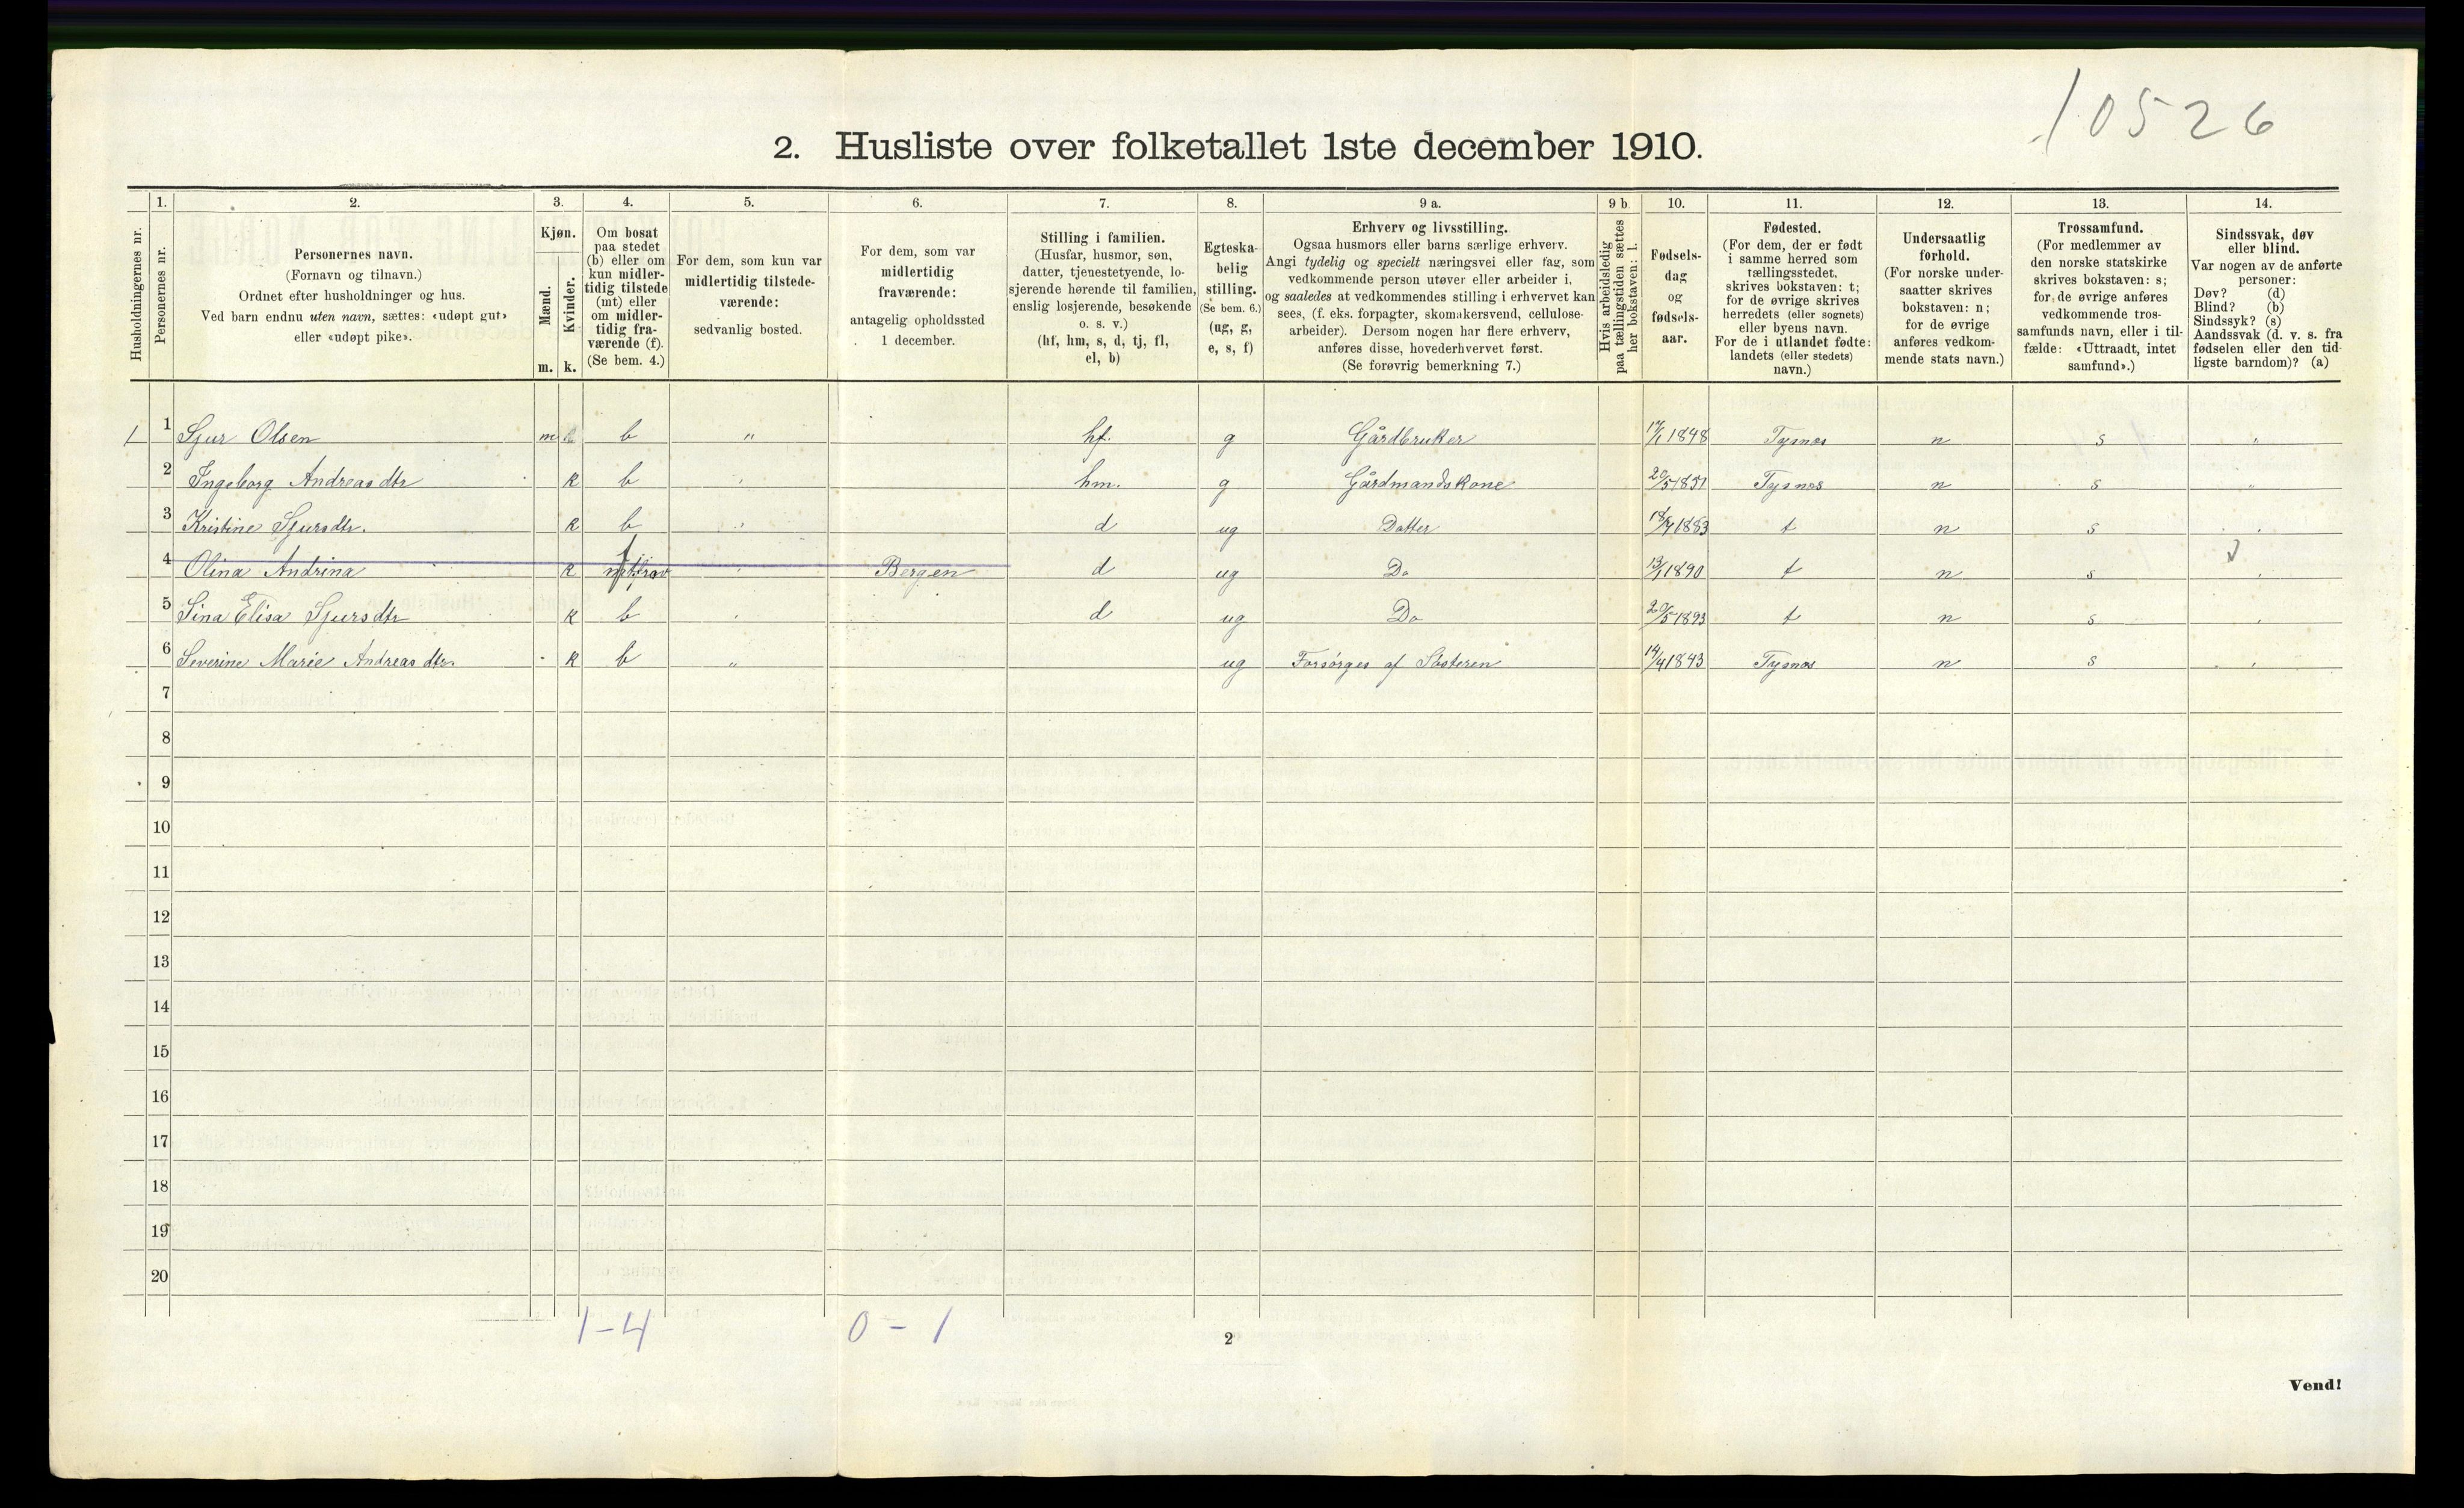 10526
2. Husliste over folketallet 1ste december 1910.
Husholdningernes nr.
1.
Personernes nr.
2.
Personernes navn.
(Fornavn og tilnavn.)
Ordnet efter husholdninger og hus.
Ved barn endnu uten navn, sættes: «udøpt gut»
eller «udøpt pike».
3.
Kjøn.
Mænd.
Kvinder.
m. k.
4.
Om bosat
paa stedet
(b) eller om
kun midler-
tidig tilstede
(mt) eller
om midler-
tidig fra-
værende (f).
(Se bem. 4.)
5.
For dem, som kun var
midlertidig tilstede-
værende:
sedvanlig bosted.
6.
For dem, som var
midlertidig
fraværende:
antagelig opholdssted
1 december.
7.
Stilling i familien.
(Husfar, husmor, søn,
datter, tjenestetyende, lo-
sjerende hørende til familien,
enslig losjerende, besøkende
o. s. v.)
(hf, hm, s, d, tj, fl,
el, b)
8.
Egteska-
belig
stilling.
(Se bem. 6.)
(ug, g,
e, s, f)
9 a.
Erhverv og livsstilling.
Ogsaa husmors eller barns særlige erhverv.
Angi tydelig og specielt næringsvei eller fag, som
vedkommende person utøver eller arbeider i,
og saaledes at vedkommendes stilling i erhvervet kan
sees, (f. eks. forpagter, skomakersvend, cellulose-
arbeider). Dersom nogen har flere erhverv,
anføres disse, hovederhvervet først.
(Se forøvrig bemerkning 7.)
9 b
Hvis arbeidsledig
paa tællingstiden sættes
her bokstaven: l.
10.
Fødsels-
dag
og
fødsels-
aar.
11.
Fødested.
(For dem, der er født
i samme herred som
tællingsstedet,
skrives bokstaven: t;
for de øvrige skrives
herredets (eller sognets)
eller byens navn.
For de i utlandet fødte:
landets (eller stedets)
navn.)
12.
Undersaatlig
forhold.
(For norske under-
saatter skrives
bokstaven: n;
for de øvrige
anføres vedkom-
mende stats navn.)
13.
Trossamfund.
(For medlemmer av
den norske statskirke
skrives bokstaven: s;
for de øvrige anføres
vedkommende tros-
samfunds navn, eller i til-
fælde: «Uttraadt, intet
samfund».)
14.
Sindssvak, døv
eller blind.
Var nogen av de anførte
personer:
Døv? (d)
Blind? (b)
Sindssyk? (s)
Aandssvak (d. v. s. fra
fødselen eller den tid-
ligste barndom)? (a)
1 1 Sjur Olsen m b " hf. g Gårdbruker 17/1 1848 Tysnes n s "
2 Ingeborg Andreasdtr k b " hm. g Gårdmandskone 20/5 1851 Tysnes n s "
3 Kristine Sjursdtr. k b " d ug Datter 18/7 1883 t n s "
4 Olina Andrina k f " Bergen d ug Do 13/1 1890 t n s "
5 Sina Elisa Sjursdtr k b " d ug Do 20/5 1893 t n s "
6 Severine Marie Andreasdtr. k b " ug Forsørges af Søsteren 14/4 1843 Tysnes n s "
7
8
9
10
11
12
13
14
15
16
17
18
19
20
1-4 0-1
2
Vend!